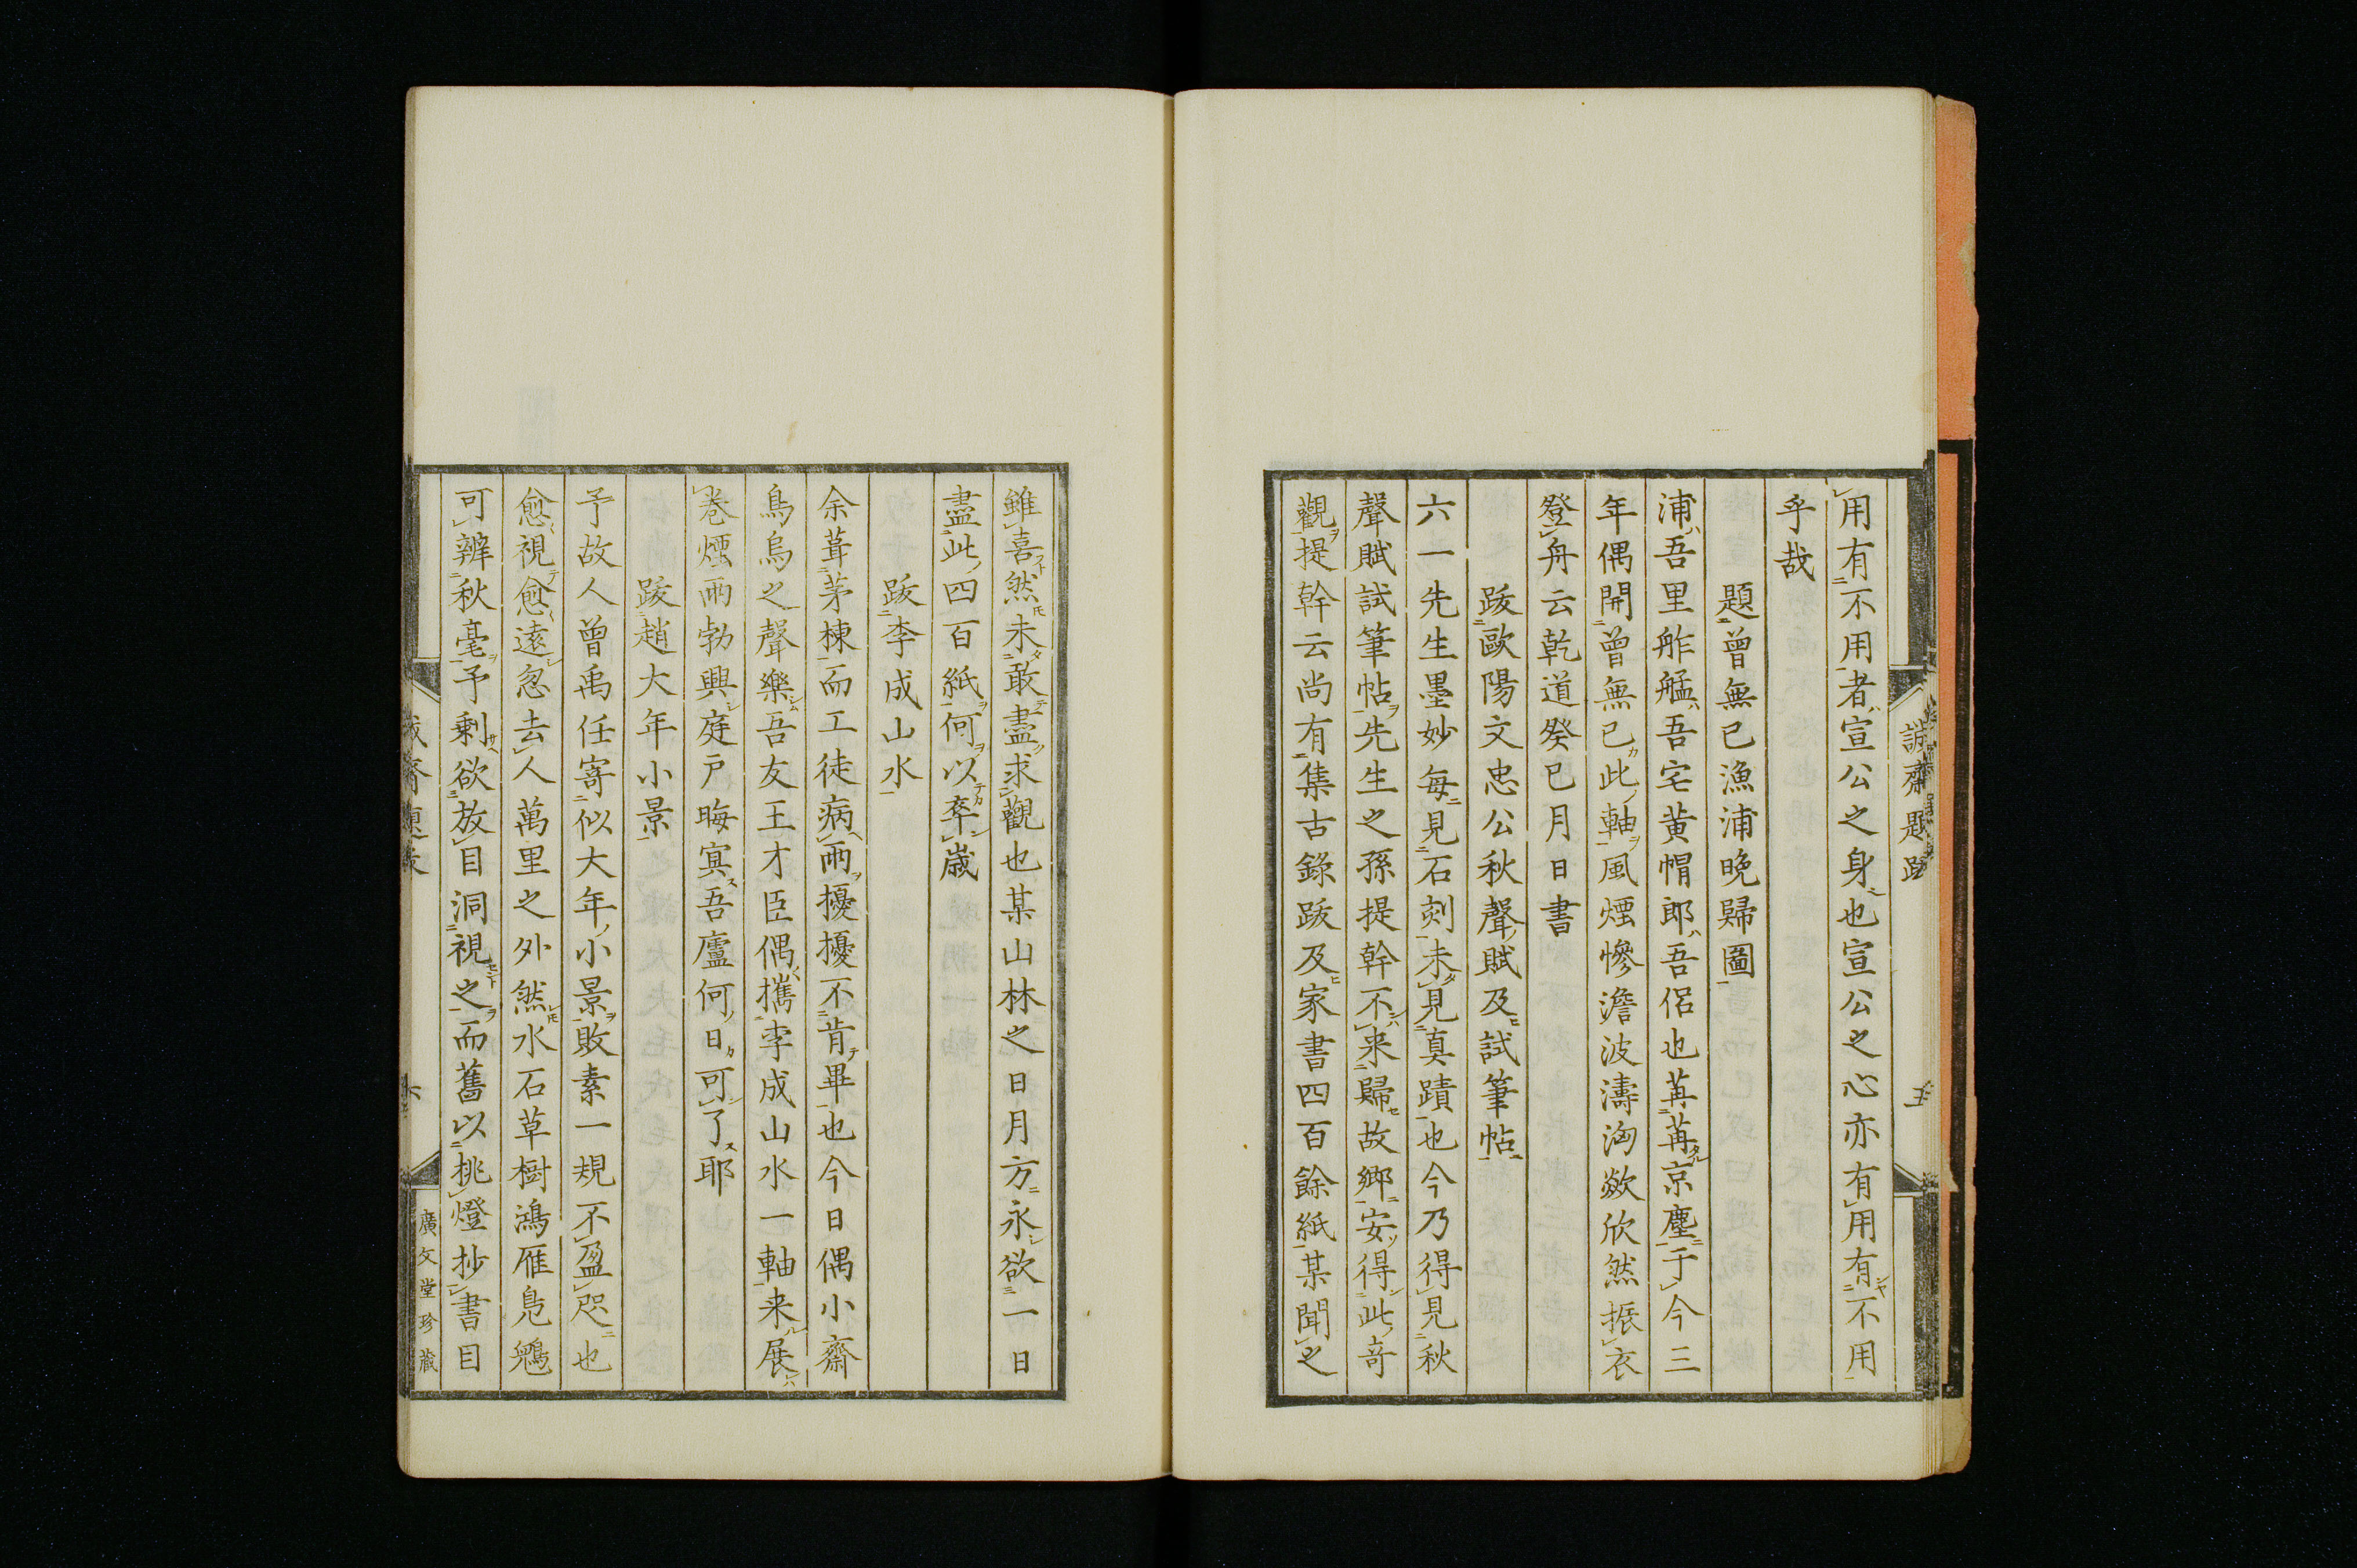 誠齋題跋
五
用有不用者宣公之身也宣公之心亦有用有不用
乎哉
題曾無已漁浦晚歸圖
浦吾里舴艋吾宅黄帽郎吾侶也苒苒京塵于今三
年偶開曾無已此軸風煙慘澹波濤洶歘欣然振衣
登舟云乾道癸巳月日書
跋歐陽文忠公秋聲賦及試筆帖
六一先生墨妙每見石刻未見真蹟也今乃得見秋
聲賦試筆帖先生之孫提幹不來歸故鄉安得此竒
觀提幹云尚有集古錄跋及家書四百餘紙某聞之
雖喜然未敢盡求觀也某山林之日月方永欲一日
盡此四百紙何以卒歲
跋李成山水
余葺茅棟而工徒病雨擾擾不肯畢也今日偶小齋
鳥烏之聲樂吾友王才臣偶攜李成山水一軸来展
卷煙雨勃興庭戸晦冥吾廬何日可了耶
跋趙大年小景
予故人曾禹任寄似大年小景敗素一規不盈咫也
愈視愈遠忽去人萬里之外然水石草樹鴻雁鳧鷖
可辨秋毫予剩欲放目洞視之而舊以挑燈抄書目
廣文堂珍藏